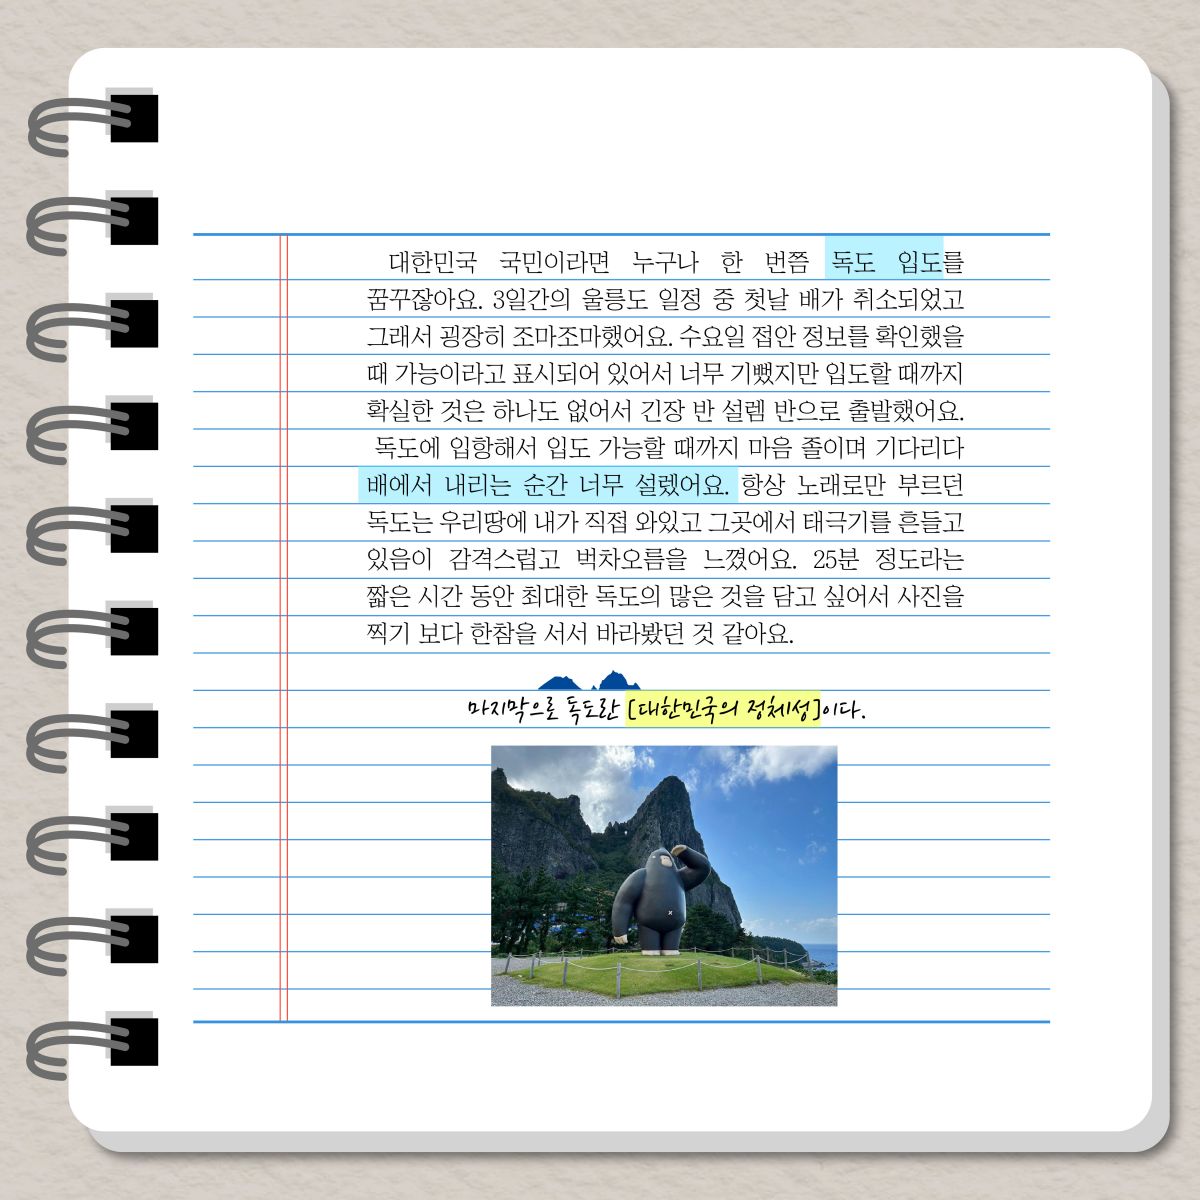 대한민국 국민이라면 누구나 한 번쯤 독도 입도를
꿈꾸잖아요. 3일간의 울릉도 일정 중 첫날 배가 취소되었고
그래서 굉장히 조마조마했어요. 수요일 접안 정보를 확인했을
때 가능이라고 표시되어 있어서 너무 기뻤지만 입도할 때까지
확실한 것은 하나도 없어서 긴장 반 설렘 반으로 출발했어요.
독도에 입항해서 입도 가능할 때까지 마음 졸이며 기다리다
배에서 내리는 순간 너무 설렜어요. 항상 노래로만 부르던
독도는 우리땅에 내가 직접 와있고 그곳에서 태극기를 흔들고
있음이 감격스럽고 벅차오름을 느꼈어요. 25분 정도라는
짧은 시간 동안 최대한 독도의 많은 것을 담고 싶어서 사진을
찍기 보다 한참을 서서 바라봤던 것 같아요.
마지막으로 독도란 [대한민국의 정체성]이다.